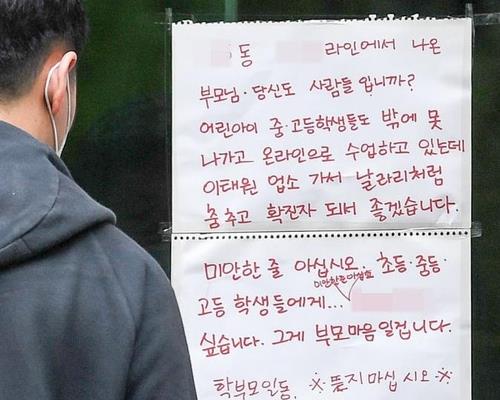 동 라인에서 나온
부모님·당신도 사람들 입니까?
어린아이 중·고등학생들도 밖에 못
나가고 온라인으로 수업하고 있는데
이태원 업소 가서 날라리처럼
춤추고 확진자 되서 좋겠습니다.
미안한 줄 아십시오. 초등·중등·
고등 학생들에게...
싶습니다. 그게 부모마음일겁니다.
학부모일동. ※ 뜯지마십시오 ※